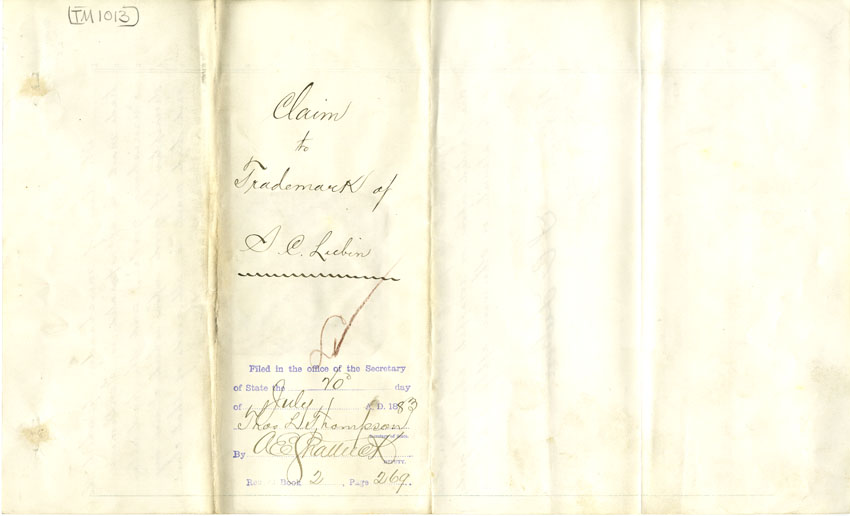 TM1013
Claim
to
Trademark of
S C. Liebin
Filed in the office of the Secretary
of State the 20th day
of July A. D. 1883
Thos L. Thompson
Secretary of State.
By A E
DEPUTY.
Book 2, Page 269.